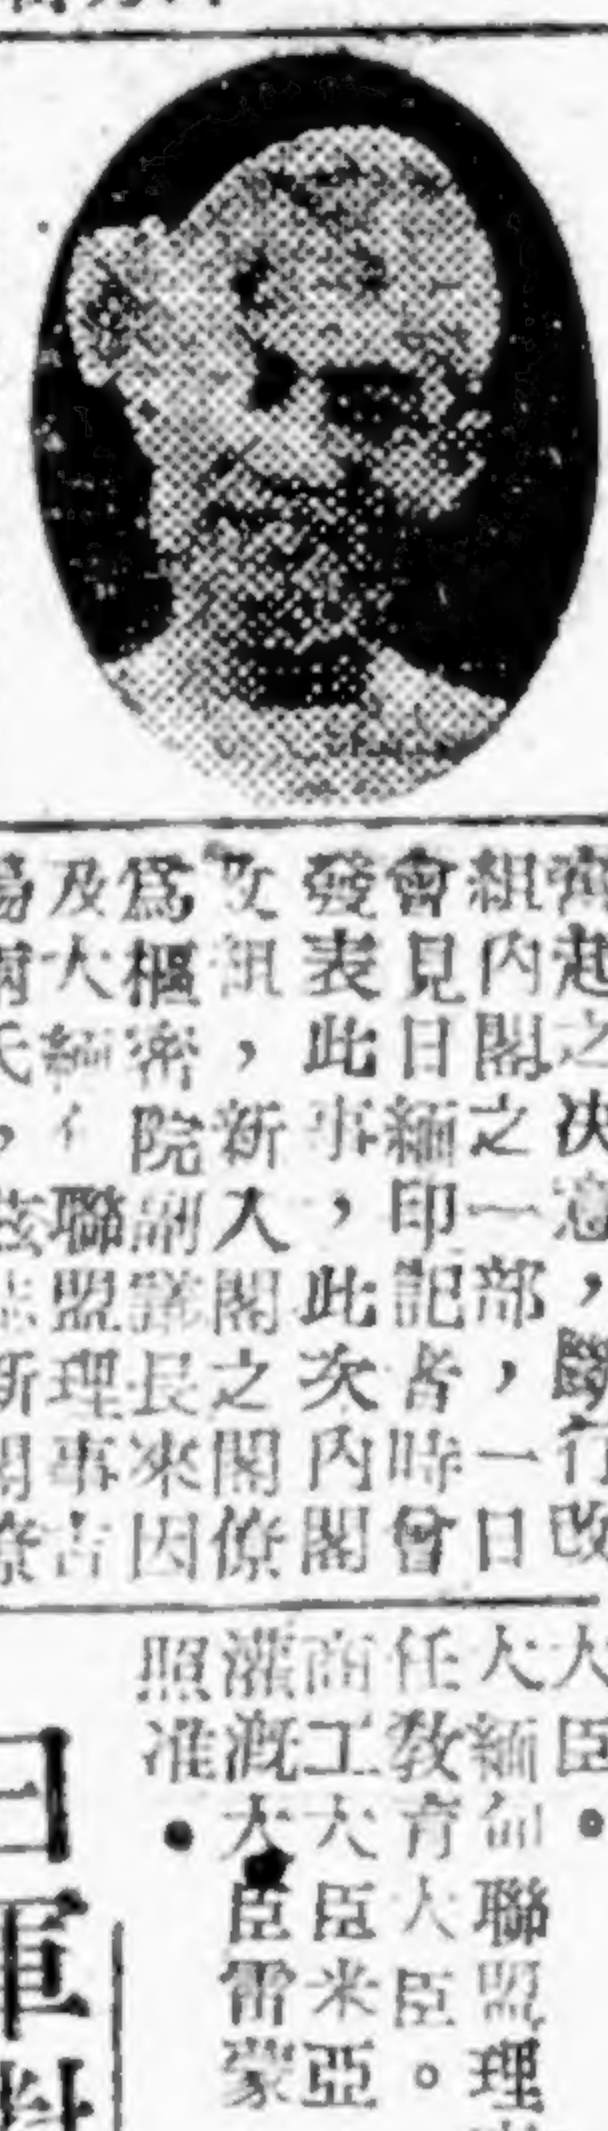 齊起之决意，斷行改
組內閣之一部，一日
會見日緬印記者時曾
發表此事，此次內閣
改組，新入閣之閣僚
為樞密院副議長來因
及大緬甸聯盟理事吉
大臣。
大緬甸聯盟理
任教育大臣。
商工大臣米亞
灌溉大臣雷蒙
照准
日軍